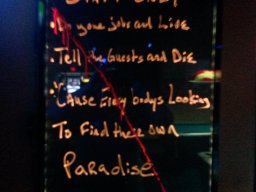 Staff Only
• Do your Jobs and Live
• Tell the Guests and Die
• 'Cause Every bodys Looking
To Find there own
Paradise